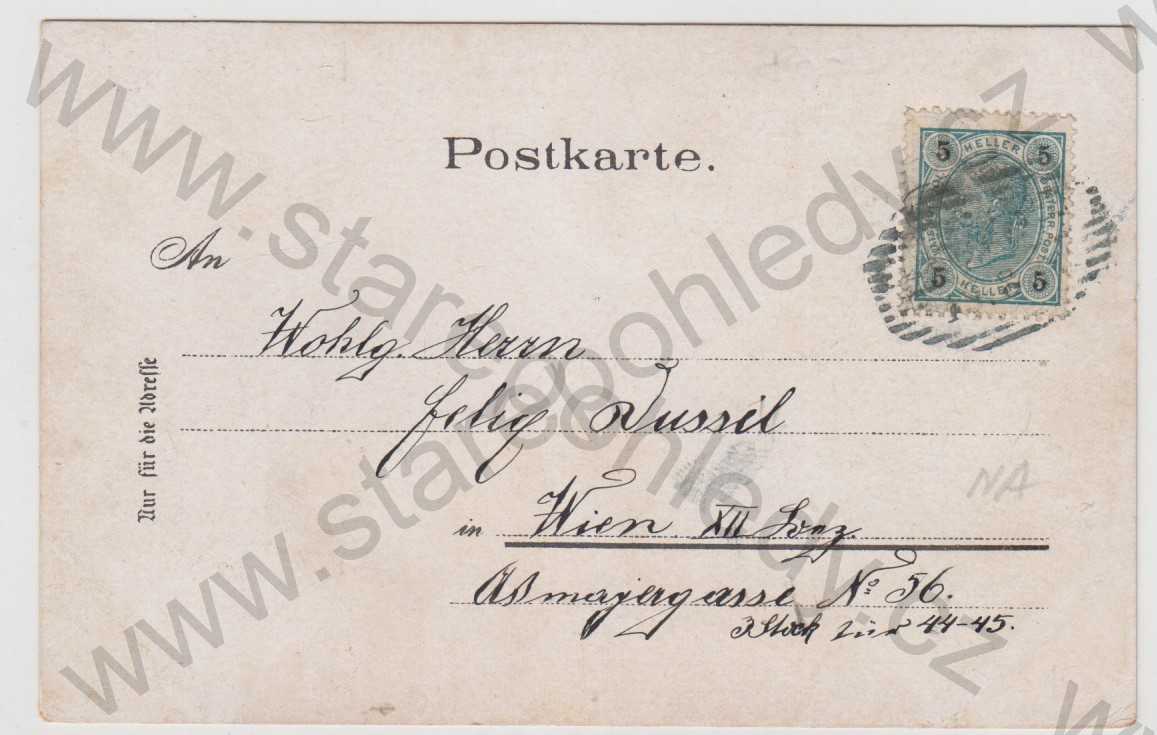 Postkarte.
5 HELLER 5
5 HELLER 5
An
Wohlg. Herrn
Felix Dussil
in Wien XII
Aßmayergasse No 56.
3 Stock Tür 44-45.
Nur für die Adresse
NA
www.starepohledy.cz
www.starepohledy.cz